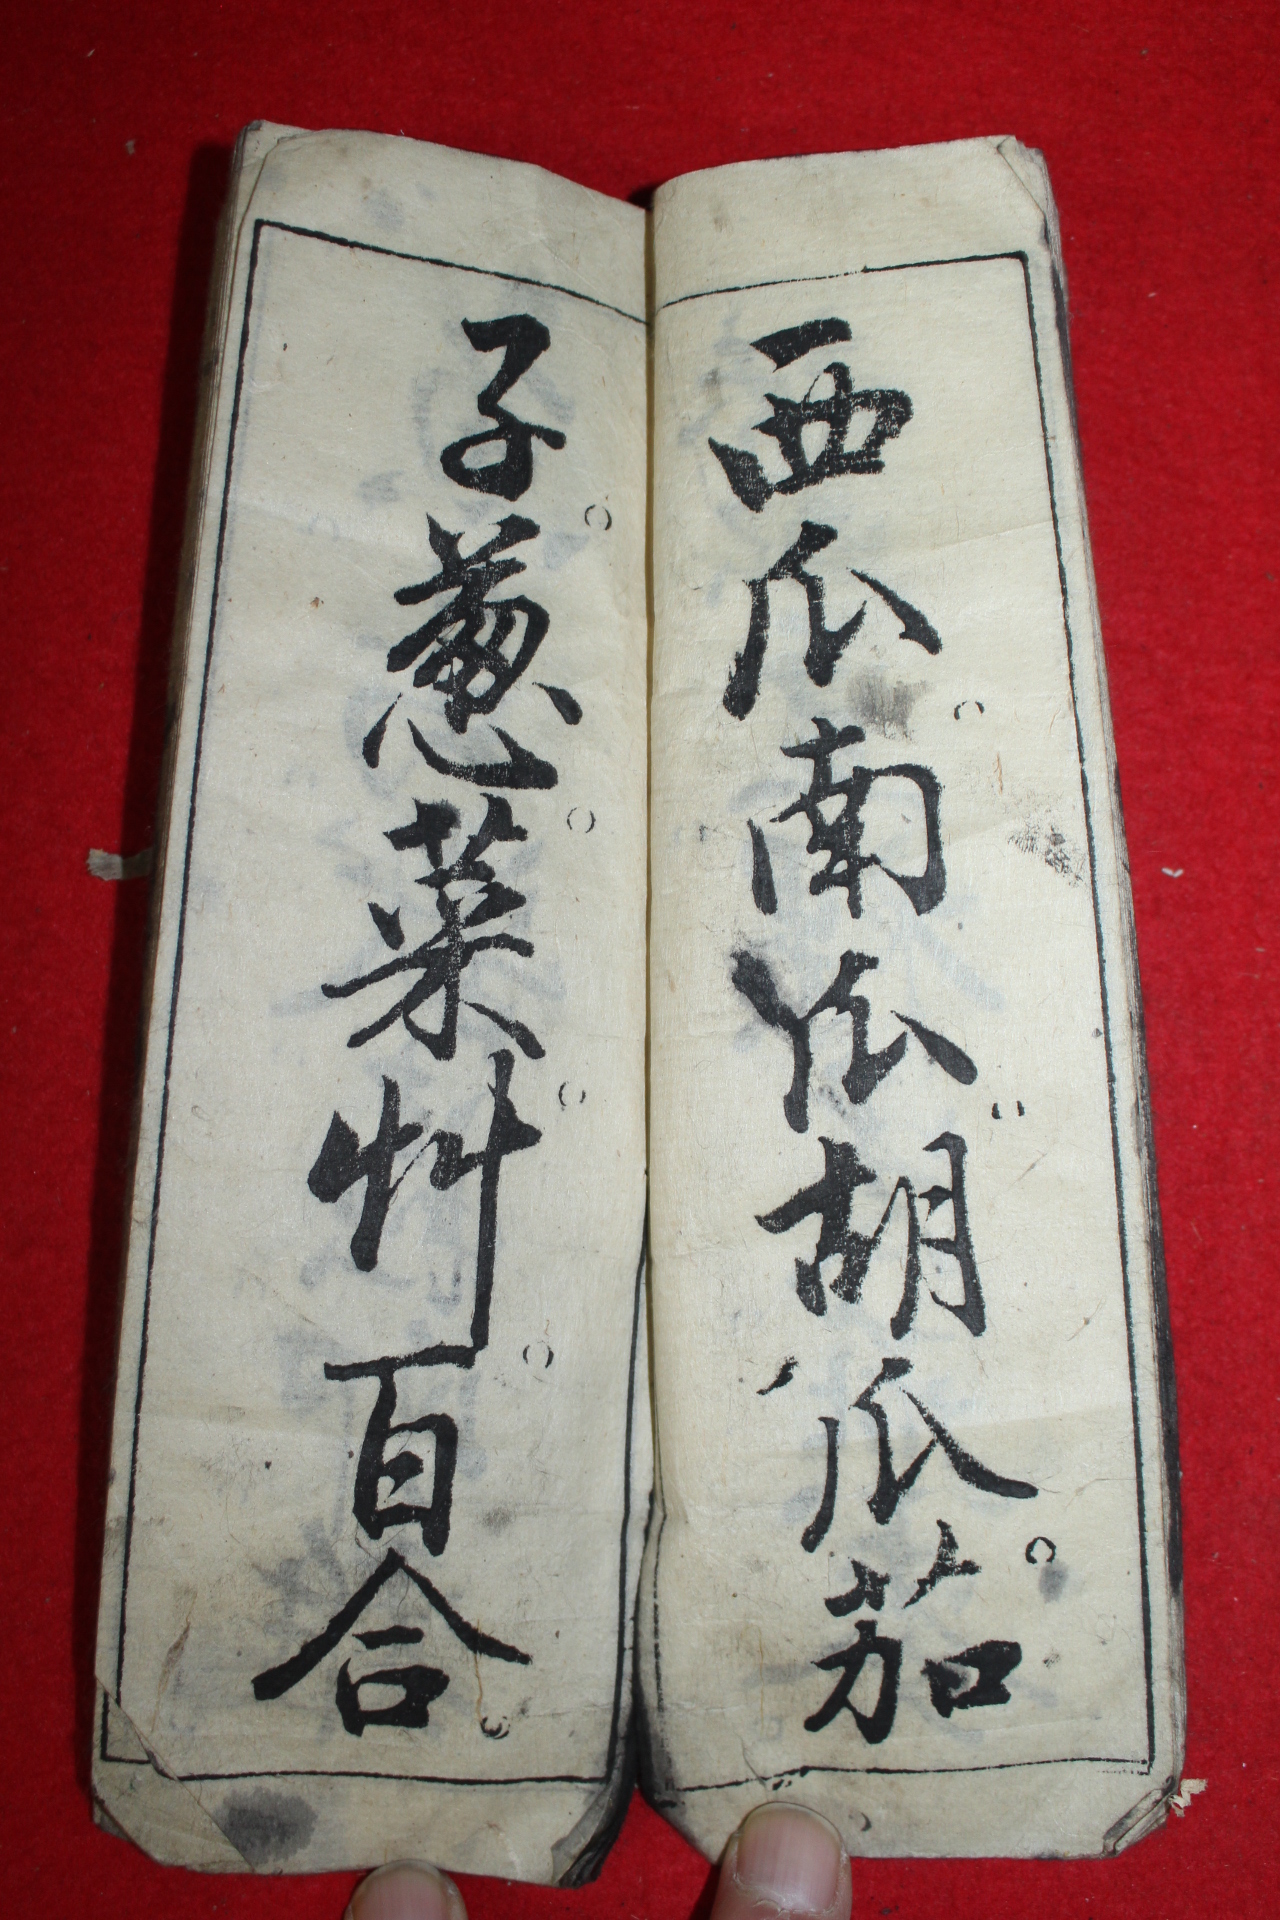 西瓜。南瓜。胡瓜。茄
子。葱。菜。艸。百合。